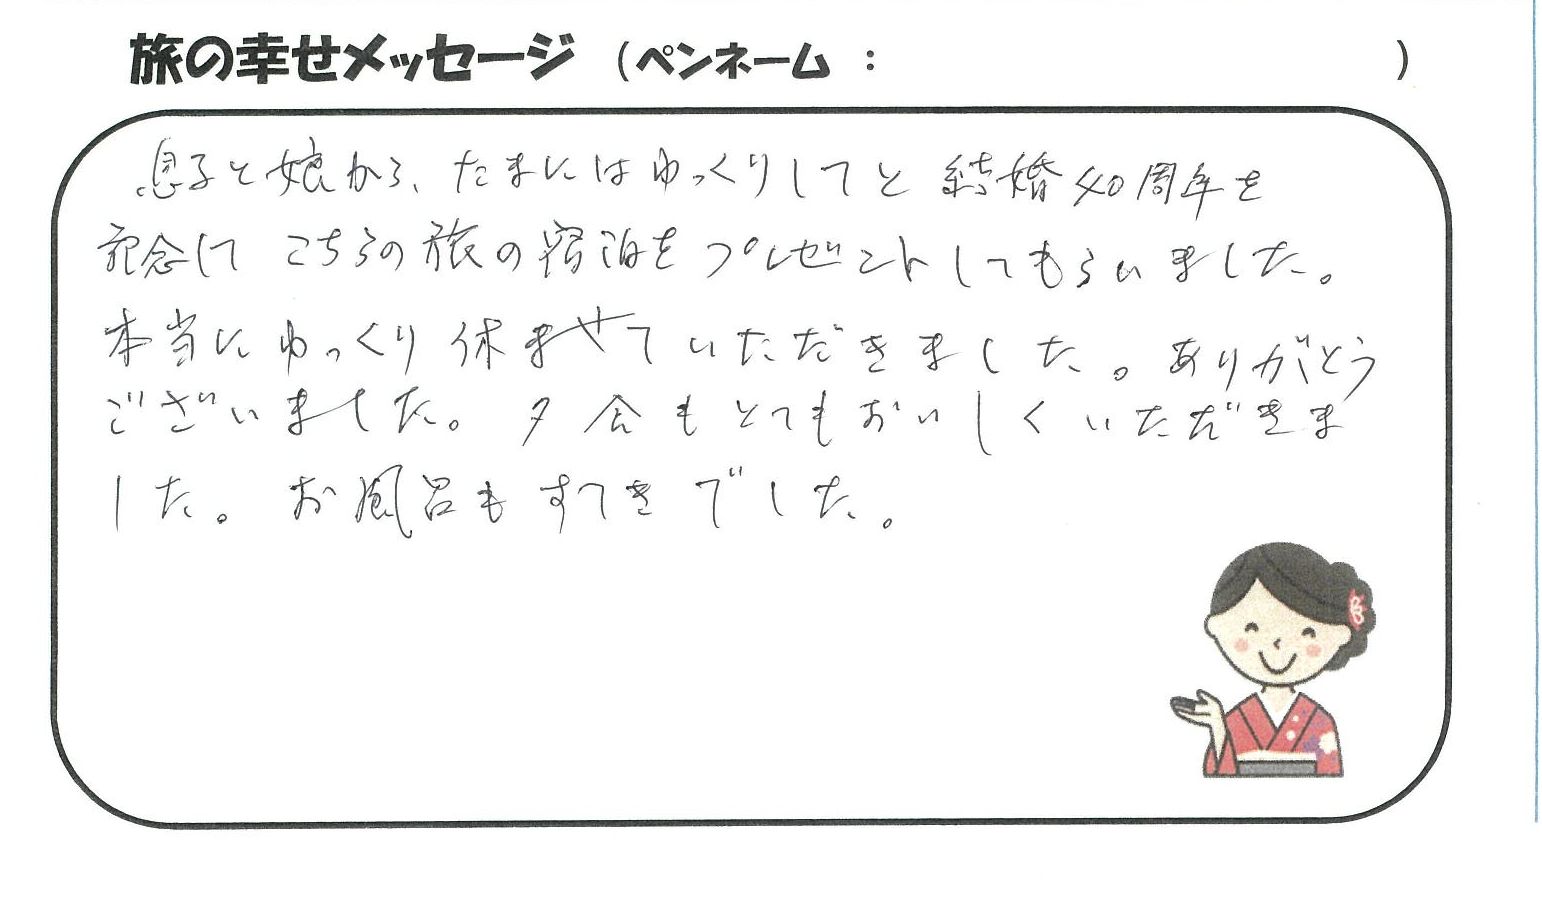 旅の幸せメッセージ (ペンネーム : )
息子と娘から、たまにはゆっくりしてと結婚40周年を
記念して こちらの旅の宿泊をプレゼントしてもらいました。
本当にゆっくり休ませていただきました。ありがとう
ございました。夕食もとてもおいしくいただきま
した。お風呂もすてきでした。